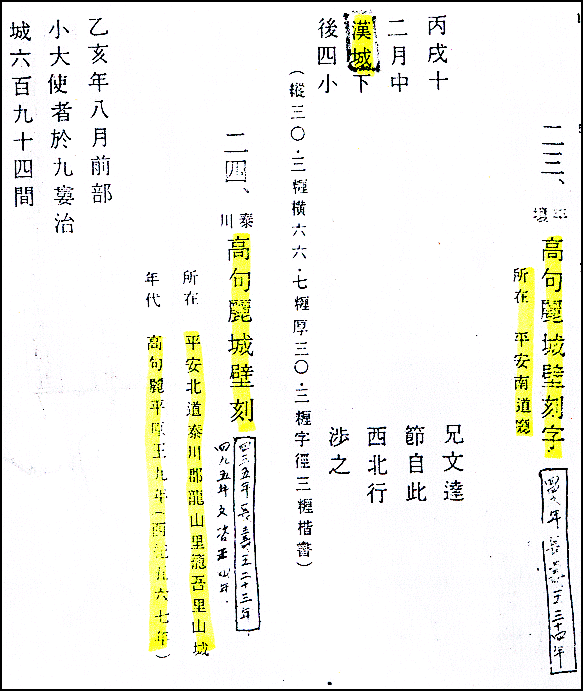 二三、平壤高句麗城壁刻字
長壽王三十四年
所在 平安南道
丙戌十
二月中
漢城下
後四小
兄文達
節自此
西北行
涉之
(縱三〇·三糎橫六六·七糎厚三〇·三糎字徑三糎楷書)
二四、泰川高句麗城壁刻
四三五年 長壽王二十三年
四九五年 文咨王四年
所在 平安北道泰川郡龍山里籠吾里山城
年代 高句麗平原王九年(西紀五六七年)
乙亥年八月前部
小大使者於九婁治
城六百九十四間